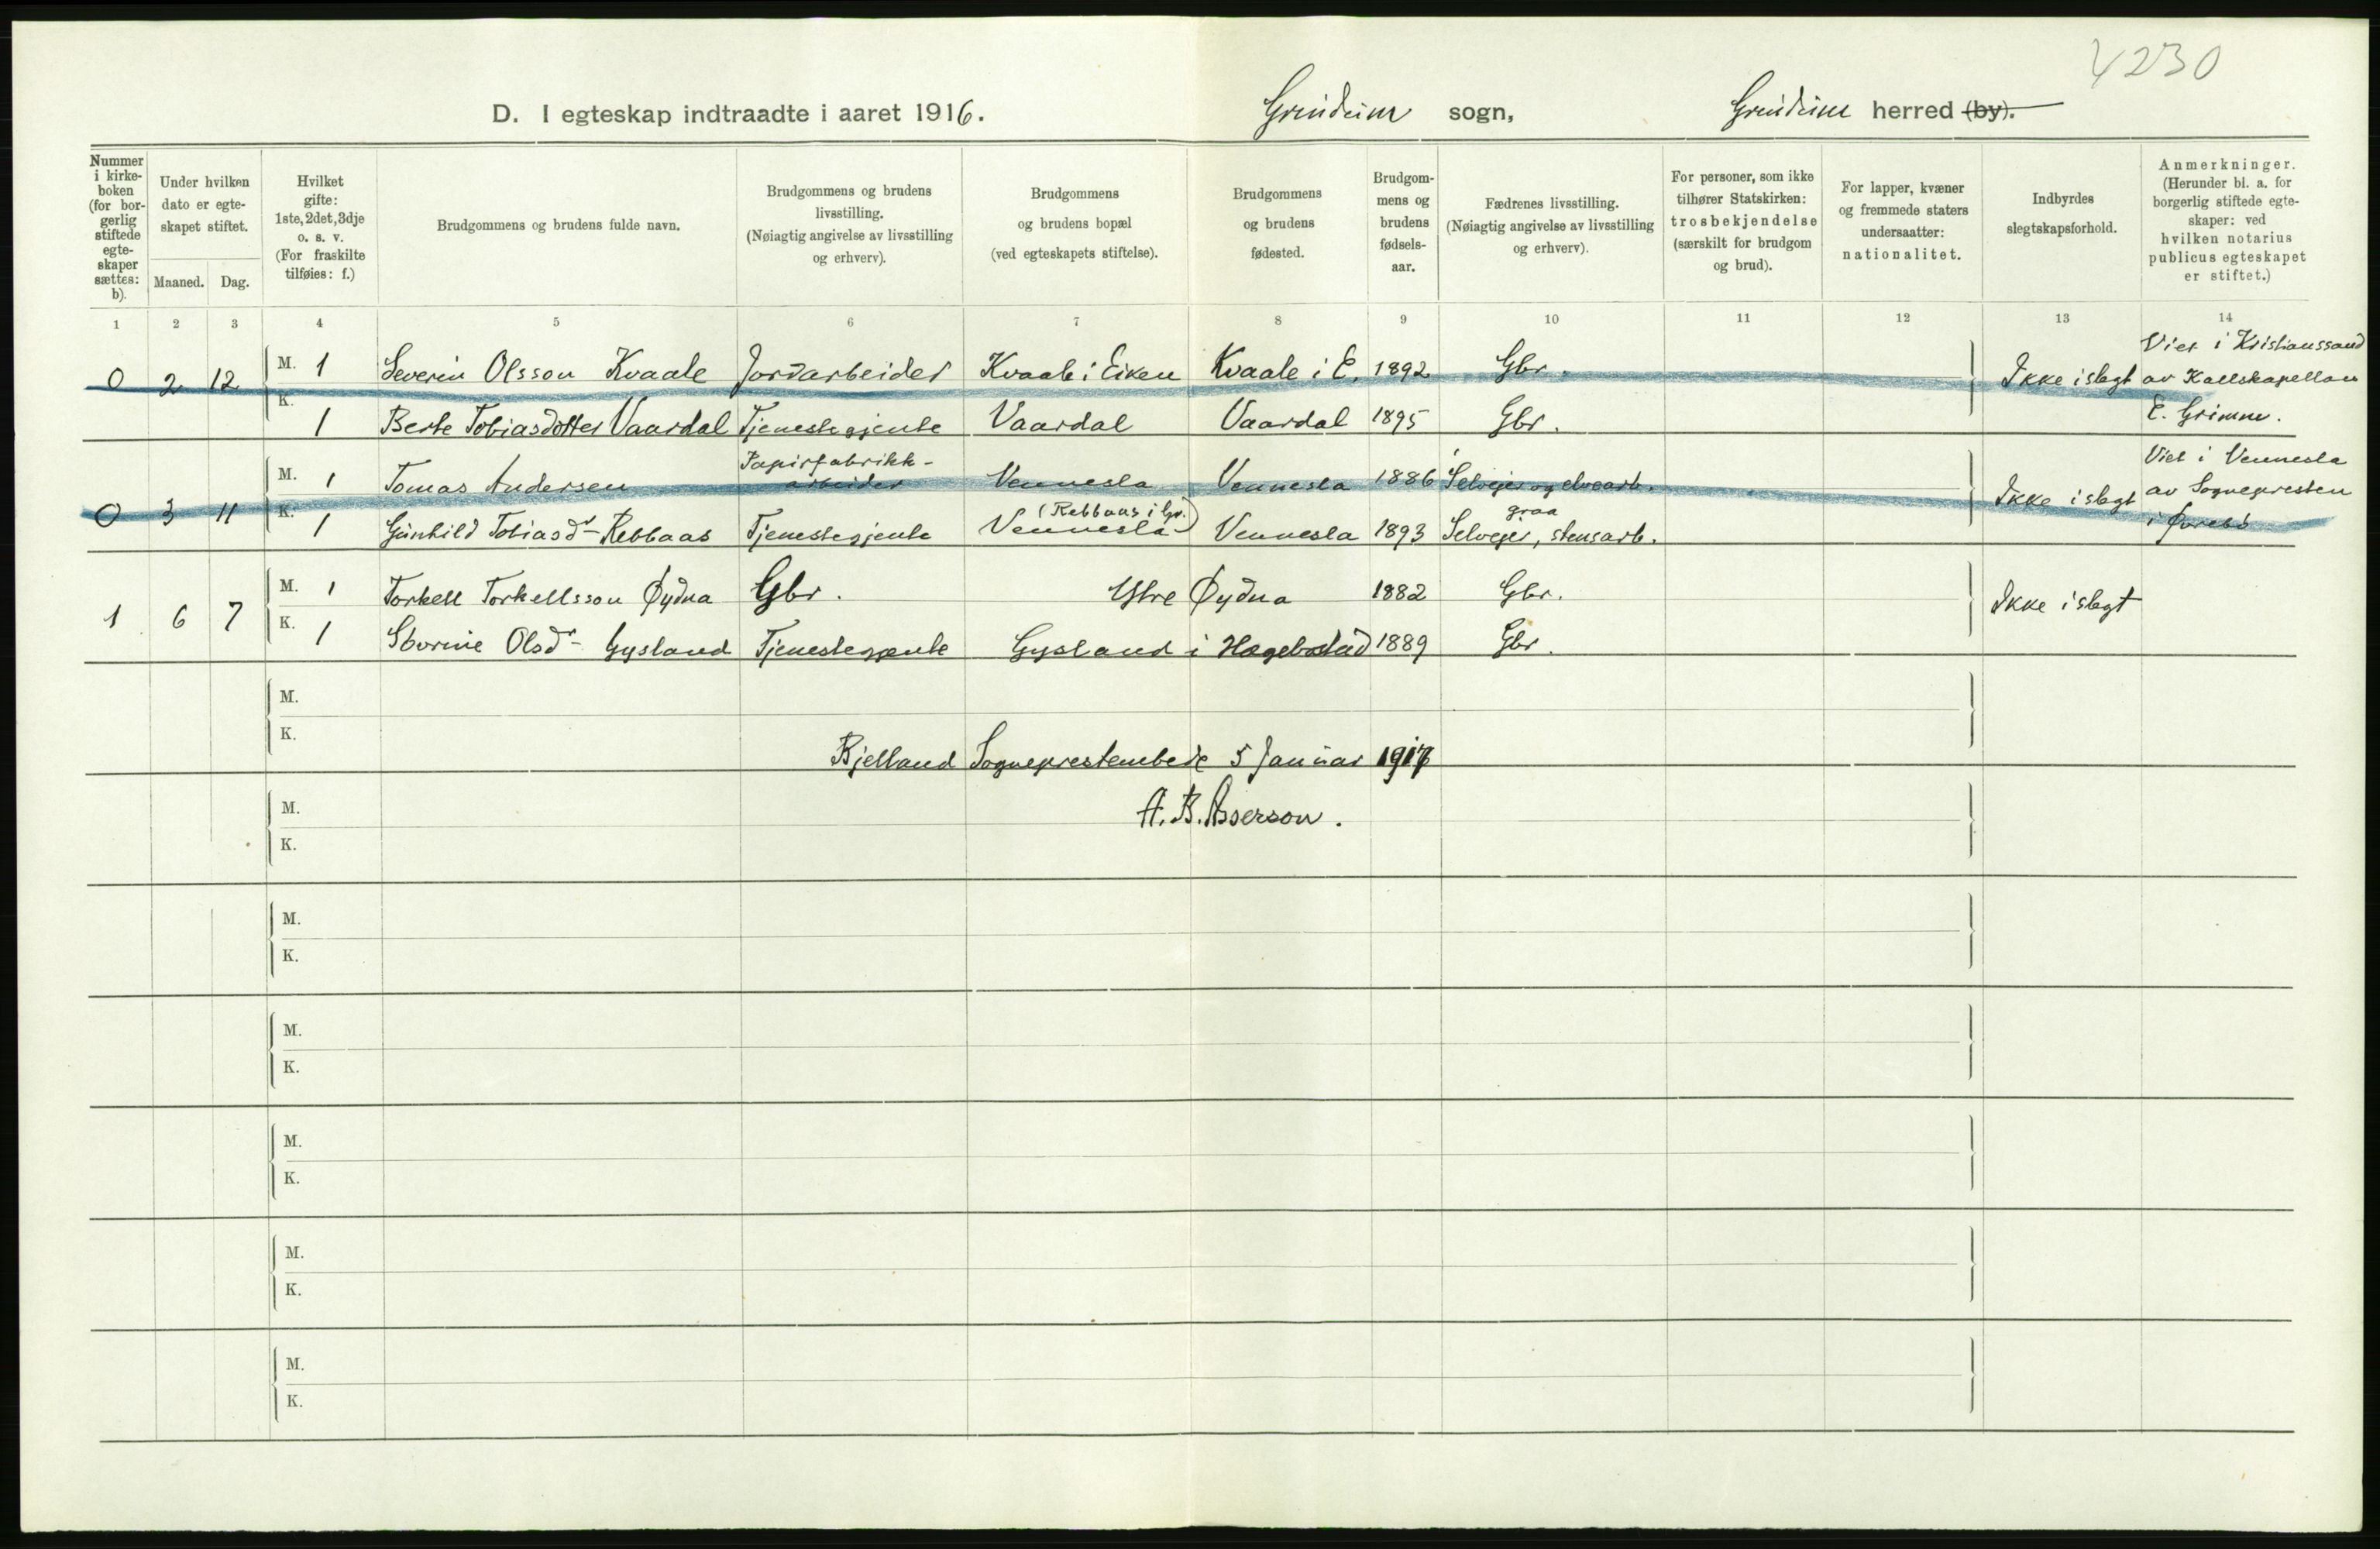 4230
D. I egteskap indtraadte i aaret 1916. Grindum sogn, Grindum herred (by).
Nummer i kirkeboken (for borgerlig stiftede egteskaper sættes: b).
Under hvilken dato er egteskapet stiftet.
Maaned. Dag.
Hvilket gifte: 1ste, 2det, 3dje o. s. v. (For fraskilte tilføies: f.)
Brudgommens og brudens fulde navn.
Brudgommens og brudens livsstilling. (Nøiagtig angivelse av livsstilling og erhverv).
Brudgommens og brudens bopæl (ved egteskapets stiftelse).
Brudgommens og brudens fødested.
Brudgommens og brudens fødselsaar.
Fædrenes livsstilling. (Nøiagtig angivelse av livsstilling og erhverv).
For personer, som ikke tilhører Statskirken: trosbekjendelse (særskilt for brudgom og brud).
For lapper, kvæner og fremmede staters undersaatter: nationalitet.
Indbyrdes slegtskapsforhold.
Anmerkninger. (Herunder bl. a. for borgerlig stiftede egteskaper: ved hvilken notarius publicus egteskapet er stiftet.)
1 2 3 4 5 6 7 8 9 10 11 12 13 14
0 2 12 M. 1 Severin Olsson Kvaale Jordarbeider Kvaale i Eiken Kvaale i E. 1892 Gbr. Ikke i slegt Viet i Kristianssand av Kallskapellan E. Grimm.
K. 1 Berte Tobiasdotter Vaardal Tjenestegjente Vaardal Vaardal 1895 Gbr.
0 3 11 M. 1 Tomas Andersen Papirfabrikk-arbeider Vennesla Vennesla 1886 Selveier og elvearb. Ikke i slegt Viet i Vennesla av Sognepresten i Øvrebö
K. 1 Gunhild Tobiasd- Rebbaas Tjenestegjente Vennesla (Rebbaas i Gr.) Vennesla 1893 Selveier, graastensarb.
1 6 7 M. 1 Torkell Torkellsson Øydna Gbr. Ytre Øydna 1882 Gbr. Ikke i slegt
K. 1 Olsd- Gysland Tjenestegjente Gysland i Hægebostad 1889 Gbr.
M.
K.
Bjelland Sogneprestembede 5 Januar 1917
M.
A. B. Asserson.
K.
M.
K.
M.
K.
M.
K.
M.
K.
M.
K.